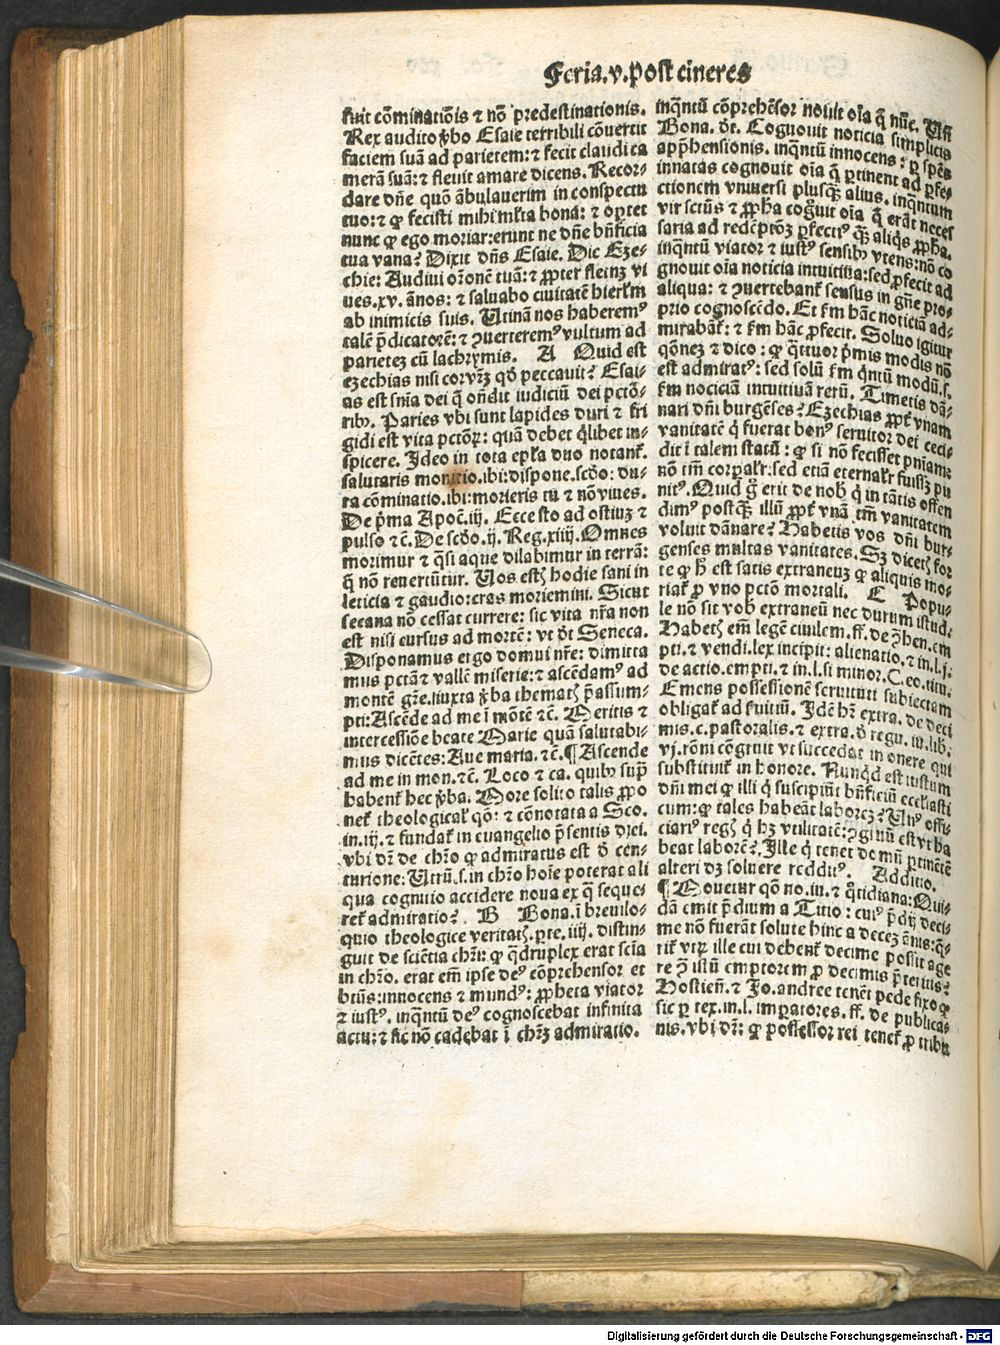 Feria.v.post cineres
fuit cōminatiōis ⁊ nō predestinationis.
Rex audito ꝟbo Esaie terribili cōuertit
faciem suā ad parietem:⁊ fecit claudi ca
merā suā:⁊ fleuit amare dicens. Recor-
dare dn̄e quō ābulauerim in conspectu
tuo:⁊ ꝙ fecisti mihi ml̄ta bona: ⁊ oꝑtet
nunc ꝙ ego moriar:erunt ne dn̄e bn̄ficia
tua vana? Dixit dn̄s Esaie. Dic Eze-
chie: Audiui orōnē tuā:⁊ ꝓpter fletuꝫ vi
ues.xv. ānos: ⁊ saluabo ciuitatē hierłm
ab inimicis suis. Utinā nos haberemꝰ
talē p̄dicatorē:⁊ ꝯuerteremꝰ vultum ad
parietez cū lachrymis. A Quid est
ezechias nisi corvr̄ꝫ qð peccauit? Esai-
as est sn̄ia dei q̄ on̄dit iudiciū dei pctō-
ribꝰ. Paries vbi sunt lapides duri ⁊ fri
gidi est vita pctōꝝ: quā debet q̇libet in-
spicere. Ideo in tota epl̄a duo notant̃.
salutaris monitio.ibi:dispone.scðo: du-
ra cōminatio.ibi:morieris tu ⁊ nō viues.
De p̄ma Apoc̄.iij. Ecce sto ad ostiuꝫ ⁊
pulso ⁊c̄. De scðo.ij. Reg.xiiij. Omnes
morimur ⁊ q̄si aque dilabimur in terrā:
q̄ nō reuertūtur. Uos estꝭ hodie sani in
leticia ⁊ gaudio:cras moriemini. Sicut
secana nō cessat currere: sic vita nr̄a non
est nisi cursus ad mortē: vt ðt Seneca.
Disponamus ergo domui nr̄e: dimitta
mus pctā ⁊ vallē miserie:⁊ ascēdamꝰ ad
montē gr̄e.iuxta ꝟba thematꝭ p̄assum-
pti:Ascēde ad me ī mōtē ⁊c̄. Meritis ⁊
intercessiōe beate Marie quā salutabi-
mus dicētes: Aue maria. ⁊c̄.¶Ascende
ad me in mon.⁊c̄. Loco ⁊ ca. quibꝰ supͣ
habent̃ hec ꝟba. More solito talis ꝓpo
net̃ theologicał qō: ⁊ cōnotata a Sco.
in.iij. ⁊ fundat̃ in euangelio p̄sentis diei.
vbi dr̄ de chr̄o ꝙ admiratus est ð cen-
turione: Utrū.s.in chr̄o hoīe poterat ali
qua cognitio accidere noua ex q̄ seque-
ret̃ admiratio? B Bona.ī breuilo-
quio theologice veritatꝭ.ꝑte.iiij. distin-
guit de sciētia chr̄i: ꝙ q̄druplex erat scīa
in chr̄o. erat em̄ ipse deꝰ cōprehensor et
btūs:innocens ⁊ mundꝰ: ꝓpheta viator
⁊ iustꝰ. inq̄ntū deꝰ cognoscebat infinita
actu:⁊ sic nō cadebat ī chr̄ꝫ admiratio.
inq̄ntū cōprehēsor nouit oīa q̄ nūc. Uñ
Bona. ðt. Cognouit noticia simplicis
app̄hensionis. inq̄ntū innocens: ꝑ spēs
innatas cognouit oīa q̄ ꝑtinent ad ꝑfe-
ctionem vniuersi plusq̄ꝫ alius. inq̄ntum
vir sctūs ⁊ ꝓpha cogūit oīa q̄ erāt neces
saria ad redēptōꝫ ꝑfectiꝰ q̄ꝫ aliq̇s ꝓpha.
inq̄ntū viator ⁊ iustꝰ sensibꝰ vtens:nō co
gnouit oīa noticia intuitiua:sed ꝓfecit ad
aliqua: ⁊ ꝯuertebant̃ sensus in gn̄e pro-
prio cognoscēdo. Et ẜm hāc noticiā ad-
mirabat̃: ⁊ ẜm hāc ꝓfecit. Soluo igitur
qōneꝫ ⁊ dico: ꝙ q̄ttuor p̄mis modis nō
est admiratꝰ: sed solū ẜm q̇ntū modū.s.
ẜm noticiā intuitiuā rerū. Timetis dā-
nari dn̄i burgēses? Ezechias ꝓpt̃ vnam
vanitatē q̇ fuerat bonꝰ seruitor dei ceci-
dit ī talem statū: ꝙ si nō fecisset pn̄iam:
nō tm̄ corpałr:sed etiā eternałr fuisꝫ pu
nitꝰ. Quid g̊ erit de nob̄ q̇ in tātis offen
dimꝰ postq̄ꝫ illū ꝓpt̃ vnā tm̄ vanitatem
voluit dānare? Habetis vos dn̄i bur-
genses multas vanitates. Sꝫ dicetꝭ for
te ꝙ h̄ est satis extraneuꝫ ꝙ aliquis mo-
riat̃ ꝓ vno pctō mortali. E Popu-
le nō sit vob̄ extraneū nec durum istud.
Habetꝭ em̄ legē ciuilem.ff. de ꝯhen.em
pti.⁊ vendi.lex incipit: alienatio.⁊ in.l.j.
de actio.empti.⁊ in.l.si minor.C.eo.titu.
Emens possessionē seruituti subiectam
obligat̃ ad ẜuitiū. Idē hꝫ extra. de deci
mis.c.pastoralis.⁊ extra.ð regu. iu.lib.
vj.rōni cōgruit vt succedat in onere qui
substituit̃ in honore. Nunq̇d est iustum
dn̄i mei ꝙ illi q̇ suscipiūt bn̄ficiū ecclesiasti
cum:ꝙ tales habeāt laboreꝫ? Unꝰ offi-
ciariꝰ regꝭ q̇ hꝫ vtilitatē:ꝯgruū est vt ha
beat laborē? Ille q̇ tenet de mū ꝑtinētē
alteri dꝫ soluere redditꝰ. Additio.
¶Mouetur qō no.iu.⁊ q̊tidiana:Qui-
dā emit p̄dium a Titio: cuiꝰ p̄dij deci-
me nō fuerāt solute hinc a decez ānis:q̄-
rit̃ vtꝝ ille cui debent̃ decime possit age
re ꝯ̄ istū emptorem ꝓ decimis p̄teritis?
Hostien̄.⁊ Jo. andree tenēt pede fixo ꝙ
sic ꝑ tex.in.l. imꝑatores. ff. de publica-
nis.vbi dr̄: ꝙ possessor rei tenet̃ ꝓ tribu
Digitalisierung gefördert durch die Deutsche Forschungsgemeinschaft - DFG